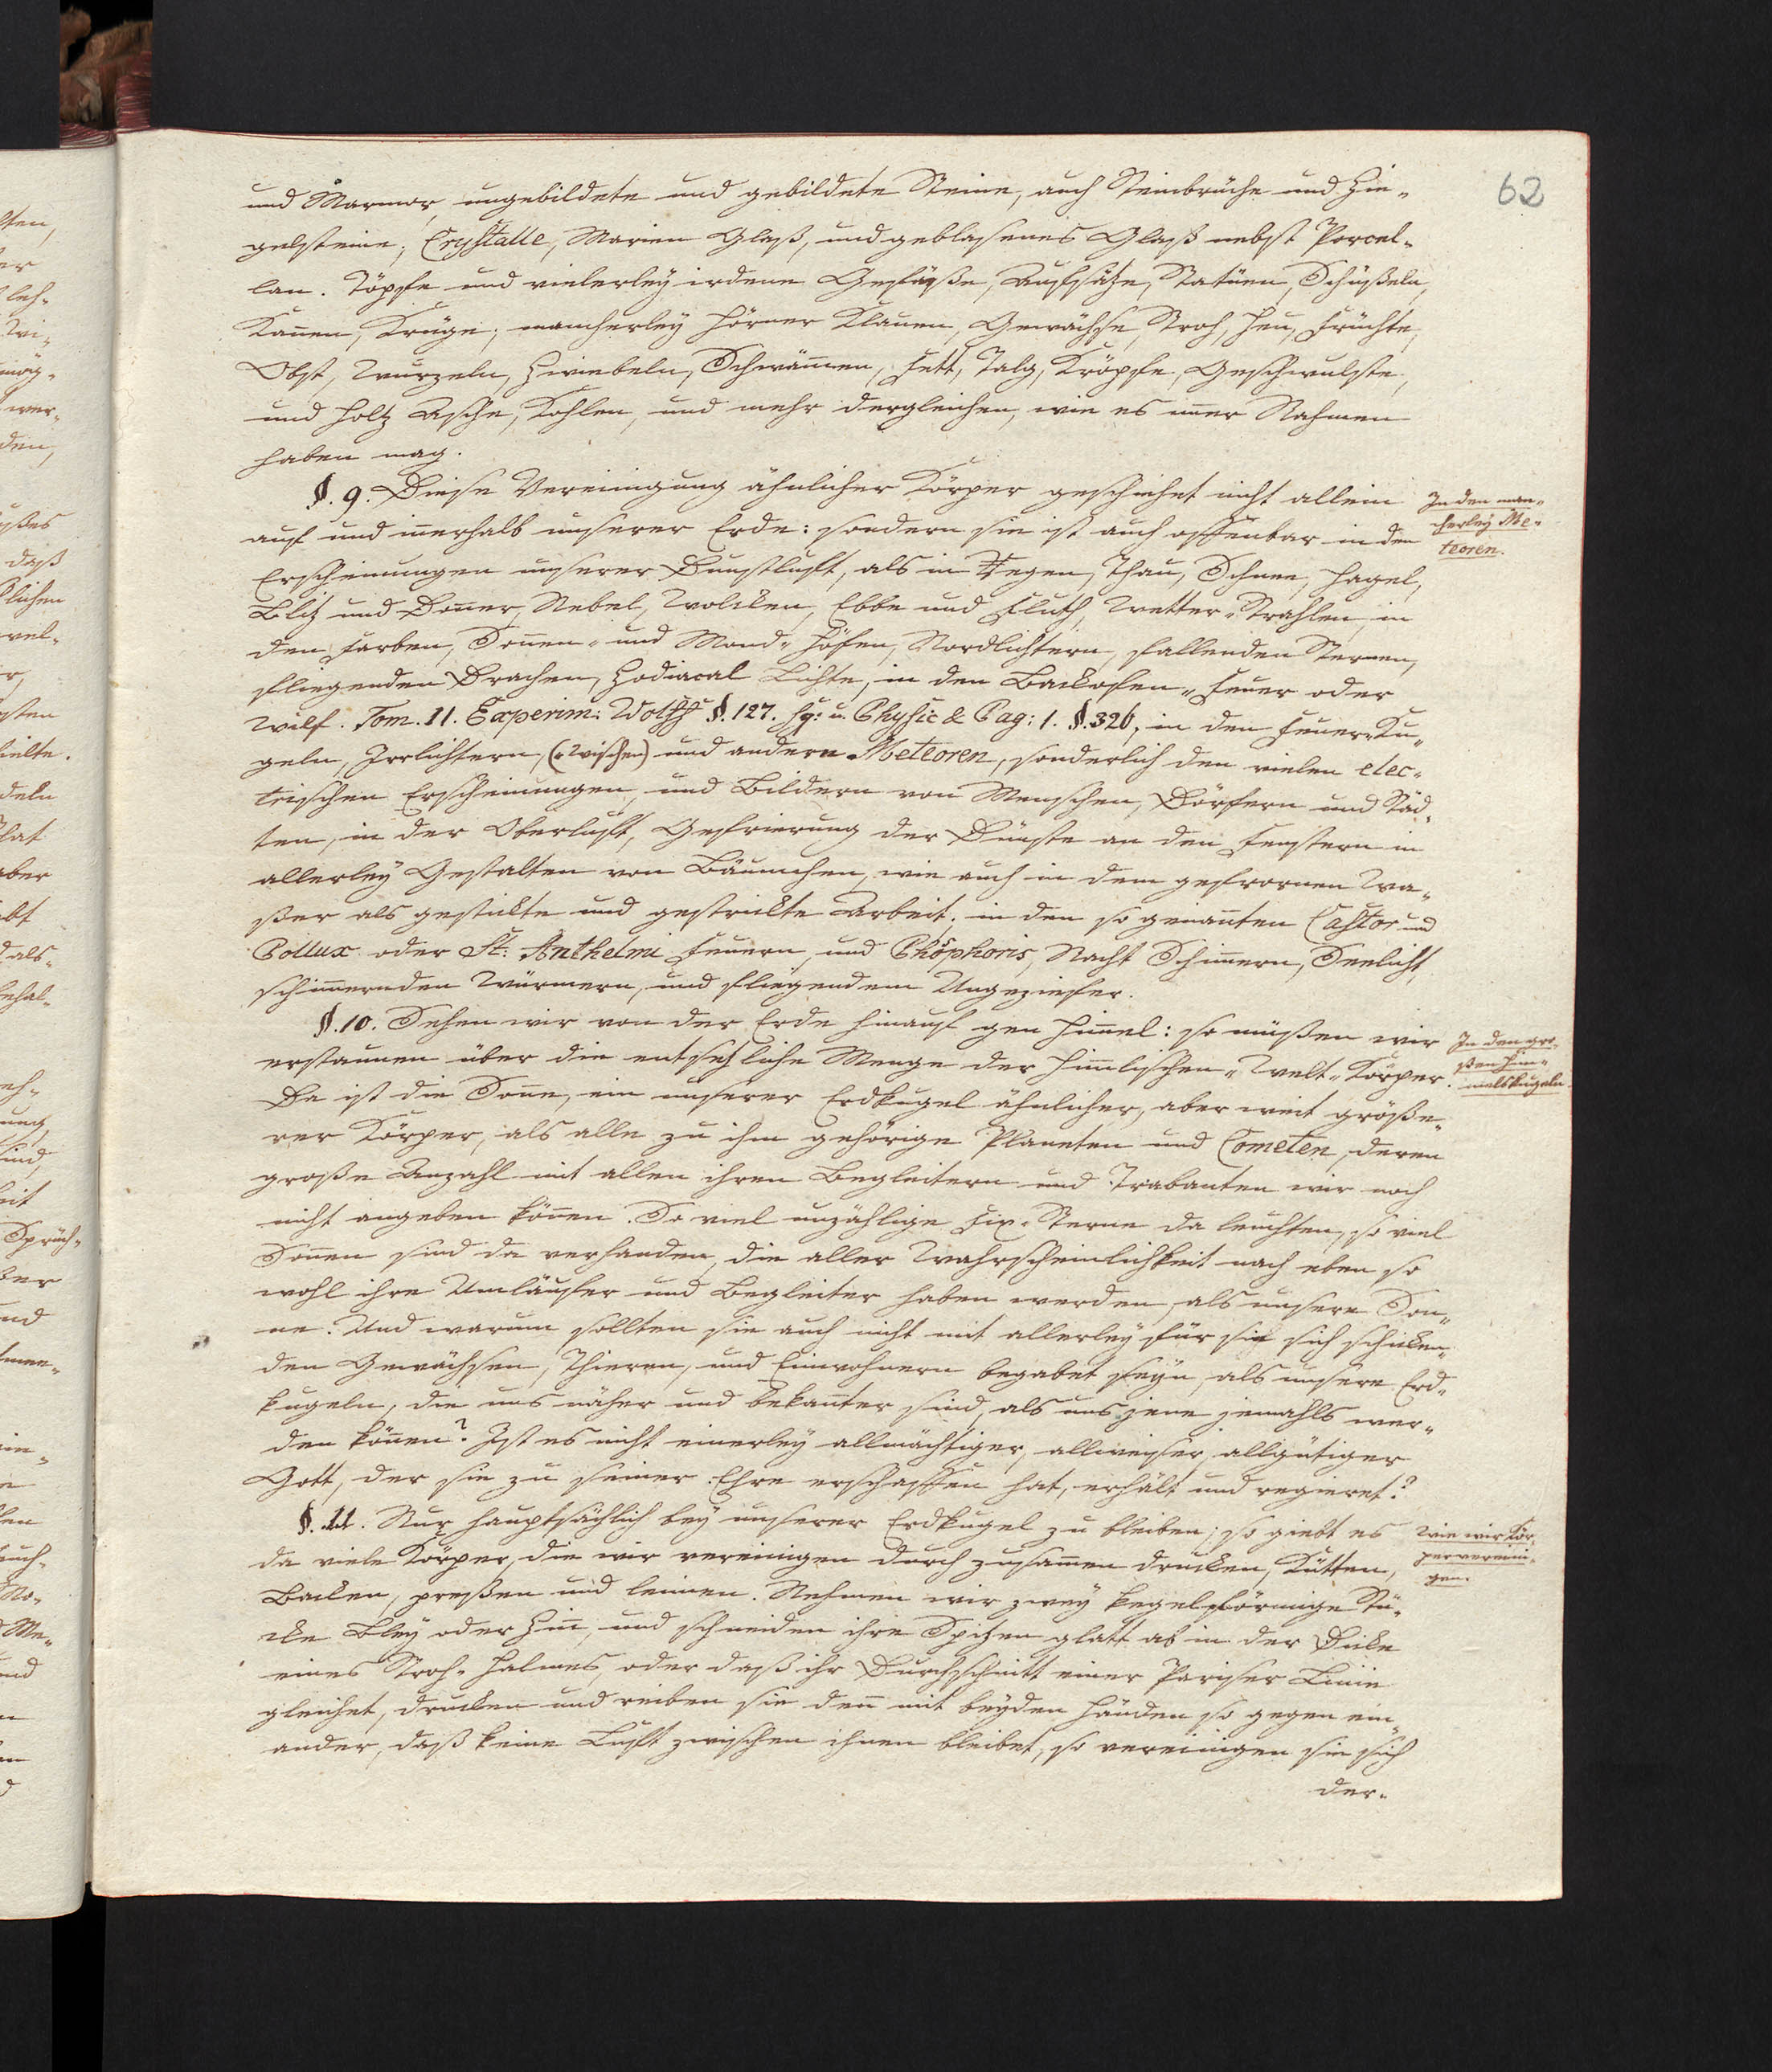 62
und Marmor, ungebildete und gebildete Steine, auch Steinbrüche und Zie-
gelsteine; Crystalle, Marien Glaß, und geblasenes Glaß nebst Porcel-
lan. Töpfe und vielerley irdene Gefäße, Aufsätze, Statüen, Schüßeln,
Kannen, Krüge; mancherley Hörner Klauen, Gewächse, Stroh, Heu, Früchte,
Obst, Wurzeln, Zwiebeln, Schwämmen, Fett, Talg, Kröpfe, Geschwulste,
und Holtz Asche, Kohlen, und mehr dergleichen, wie es immer Nahmen
haben mag.
§. 9. Diese Vereinigung ähnlicher Körper geschiehet nicht allein
auf und innerhalb unserer Erde: sondern sie ist auch offenbar in den
Erscheinungen unserer Dunstluft, als in Regen, Thau, Schnee, Hagel,
Blitz und Donner, Nebel, Wolcken, Ebbe und Fluth, Wetter-Strahlen, in
den Farben, Sonnen- und Mond-Höfen, Nordlichtern, fallenden Sternen,
fliegenden Drachen, Zodiacal Lichte, in den Backofen-Feuer oder
Wilf. Tom. II. Experim: Wolff §. 127. sq: u. Physic & Pag: 1. §. 326, in den Feuer-Ku-
geln, Irrlichtern, (-Wischen) und andern Meteoren, sonderlich den vielen elec-
trischen Erscheinungen, und Bildern von Menschen, Dörfern und Städ-
ten, in der Oberluft, Gefrierung der Dünste an den Fenstern in
allerley Gestalten von Bäumchen, wie auch in dem gefrornen Wa-
ßer als gestickte und gestrickte Arbeit, in den so genannten Castor und
Pollux oder St: Anthelmi Feuern, und Phosphoris, Nacht Schimmern, Seelicht,
schimmernden Würmern, und fliegendem Ungeziefer.
§. 10. Sehen wir von der Erde hinauf gen Himmel: so müßen wir
erstaunen über die entsetzliche Menge der Himmlischen-Welt-Körper.
Da ist die Sonne, ein unserer Erdkugel ähnlicher, aber weit größe-
rer Körper, als alle zu ihm gehörige Planeten und Cometen, deren
große Anzahl mit allen ihren Begleitern und Trabanten wir noch
nicht angeben können. So viel unzählige Fix-Sterne da leuchten, so viel
Sonnen sind da verhanden, die aller Wahrscheinlichkeit nach eben so
wohl ihre Umläufer und Begleiter haben werden, als unsere Son-
ne. Und warum sollten sie auch nicht mit allerley für sie sich schicken-
den Gewächsen, Thieren, und Einwohnern begabet seyn, als unsere Erd-
kugeln, die uns näher und bekannter sind, als uns jene jemahls wer-
den können? Ist es nicht einerley allmächtiger, allweiser, allgütiger
Gott, der sie zu seiner Ehre erschaffen hat, erhält und regieret?
§. 11. Nur hauptsächlich bey unserer Erdkugel zu bleiben; so giebt es
da viele Körper, die wir vereinigen durch zusammen drucken, Kütten,
Backen, preßen und leimen. Nehmen wir zwey kegelförmige Stü-
cke Bley oder Zinn, und schneiden ihre Spitzen glatt ab in der Dicke
eines Stroh-Halmes, oder daß ihr Durchschnitt einer Pariser Linie
gleichet, drucken und reiben sie denn mit beyden Händen so gegen ein-
ander, daß keine Luft zwischen ihnen bleibet, so vereinigen sie sich
der-
In den man-
cherley Me-
teoren.
In den gro-
ßen Him-
melskugeln.
Wie wir Kör-
per vereini-
gen.